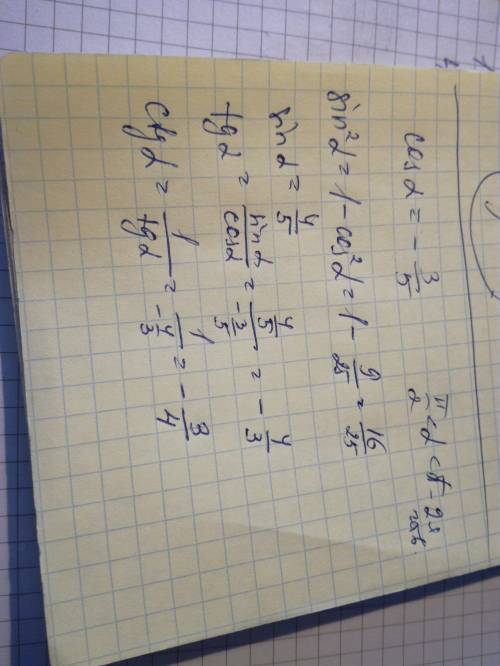 cos α = - 3/5   π/2 < α < π - 2я
sin²α = 1 - cos²α = 1 - 9/25 = 16/25
sin α = 4/5
tg α = sin α / cos α = 4/5 / -3/5 = - 4/3
ctg α = 1 / tg α = 1 / -4/3 = - 3/4